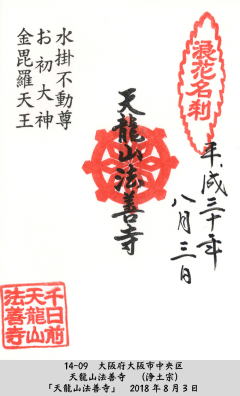 浪花名刹
平成三十年
八月三日
天龍山法善寺
水掛不動尊
お初大神
金毘羅天王
千日前
天龍山
法善寺
14-09 大阪府大阪市中央区
天龍山法善寺 (浄土宗)
「天龍山法善寺」 2018年8月3日